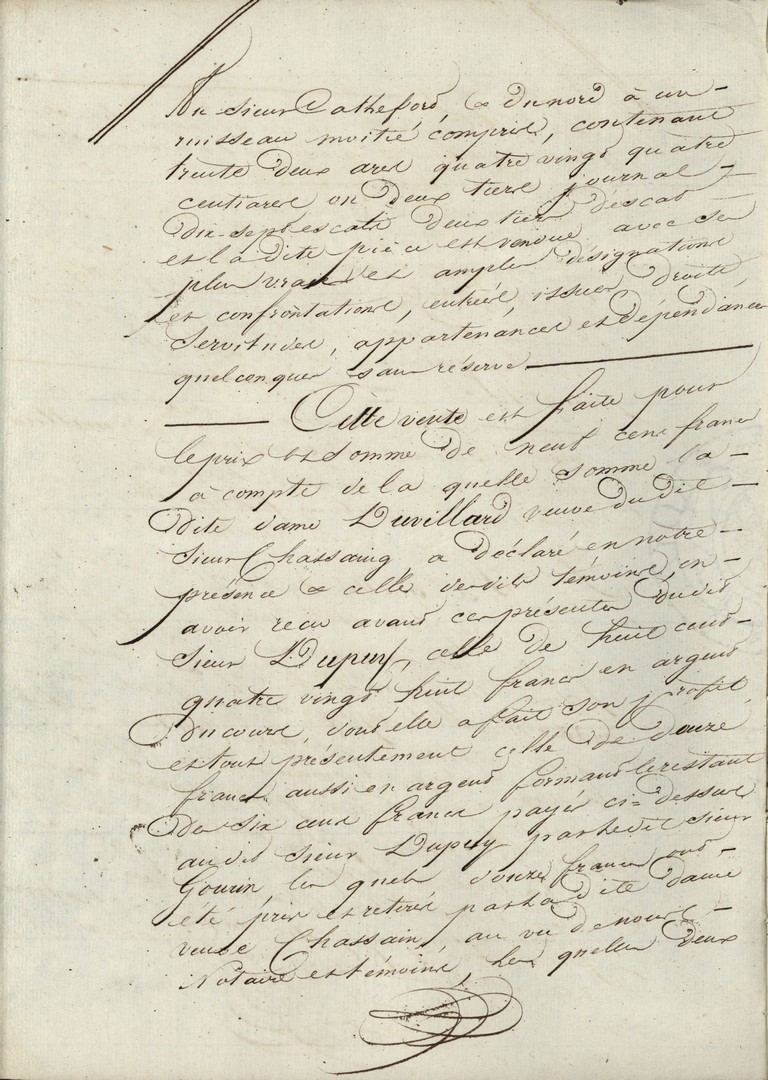 du sieur Catheford, & du nord à un
ruisseau moitié compris, contenant
trente deux ares quatre vingt quatre
centiares ou deux tiers journal
dix-sept escats deux tiers d'escat
et la dite pièce est vendue avec ses
plus vraies et amples désignations
et confrontations, entrées, issues, droits
servitudes, appartenances et dépendances
quelconques sans réserve
Cette vente est faite pour
le prix et somme de neuf cens francs
à compte de la quelle somme la
dite dame Duvillard veuve du dit
sieur Chassaing, a déclaré en notre
présence & celle desdits témoins, en
avoir reçu avant ces présentes dudit
sieur Dupuy, celle de huit cent
quatre vingt huit francs en argent
du cours, dont elle a fait son profit
et tout présentement celle de douze
francs aussi en argent formant le restant
des six cens francs payés ci=dessus
audit sieur Dupuy par ledit sieur
Gourin, les quels douze francs ont
été pris et retirés par la dite dame
veuve Chassain, au vu de nous
Notaire et témoins, les quelles deux